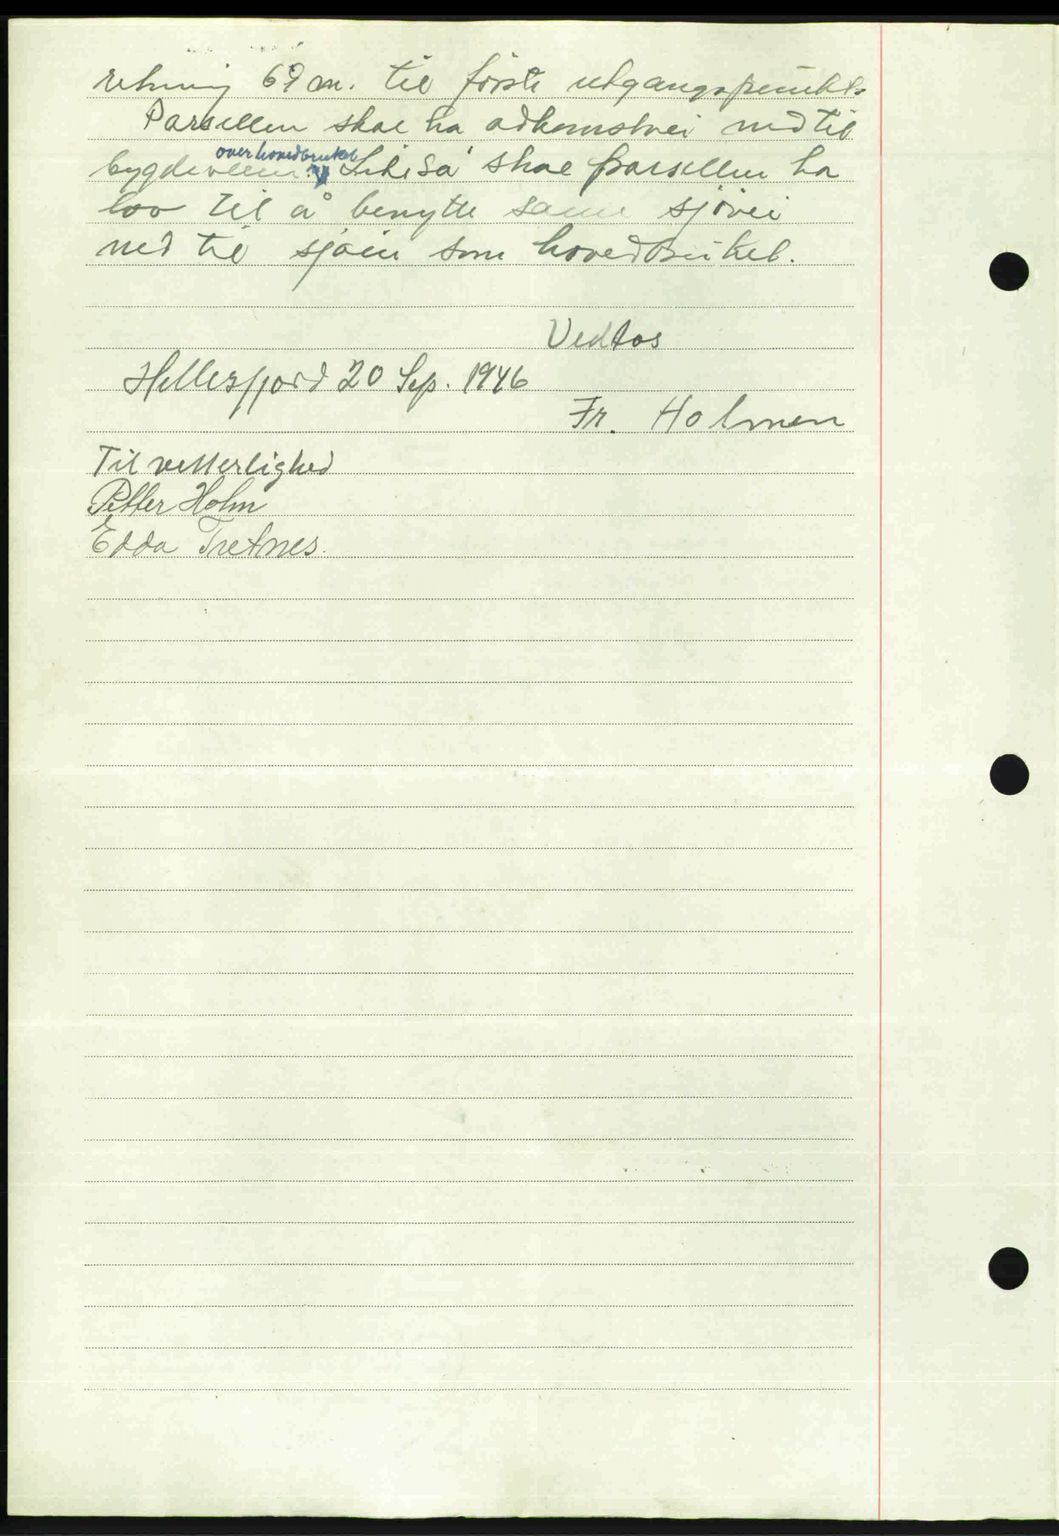 retning 69 m. til förste utgangspunkt.
Parsellen skal ha adkomstvei ned til
over hovedbruket
bygdeveien. Likeså skal parsellen ha
lov til å benytte same sjövei
ned til sjöen som hovedbruket.
Vedtas
Hellesfjord 20 Sep. 1946
Fr. Holmen
Til vetterlighed
Petter Holm
Edda Tretnes.